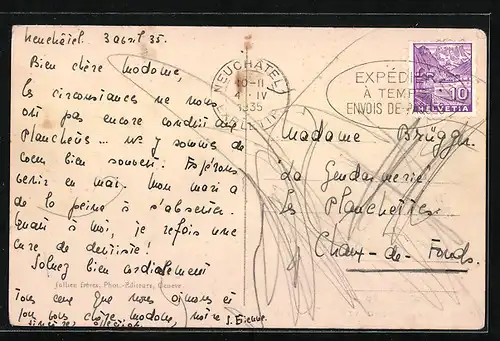 Neuchâtel. 3 avril 35.
Bien chère Madame,
les circonstances ne nous
ont pas encore conduit aux
Planchettes ... ns y sommes de
coeur bien souvent. Espérons
venir en mai. Mon mari a
de la peine à s'absenter.
Quant à moi, je refais une
cure de dentiste!
Saluez bien cordialement
Jullien frères, Phot.-Editeurs, Genève
tous ceux que nous aimons et
chère Madame, notre
NEUCHÂTEL
10-11
IV
1935
EXPÉDIEZ
À TEMPS
ENVOIS DE
10
HELVETIA
Madame Brügger
La Gendarmerie
Les Planchettes
Chaux-de-Fonds.